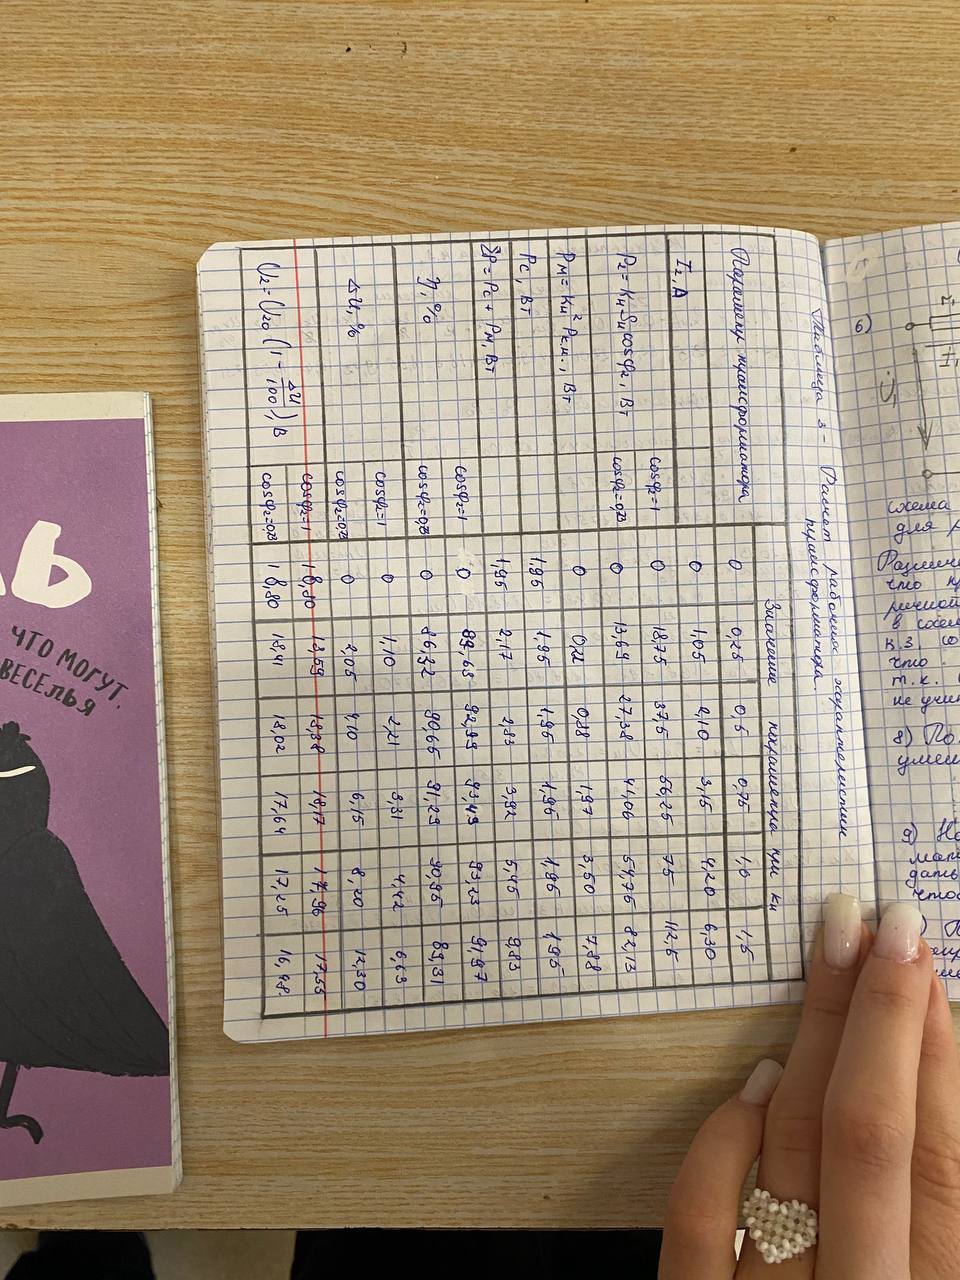 6)
Таблица 3 – Расчет рабочих характеристик
трансформатора.
Параметр трансформатора
Значение параметра при Kн
0 0,25 0,5 0,75 1,0 1,5
I₂, A 0 1,05 2,10 3,15 4,20 6,30
P₂ = KнSнcosφ₂, Вт
cosφ₂=1 0 18,75 37,5 56,25 75 112,5
cosφ₂=0,73 0 13,69 27,38 41,06 54,75 82,13
Pм = Kн² Pк.н., Вт 0 0,22 0,88 1,97 3,50 7,88
Pс, Вт 1,95 1,95 1,95 1,95 1,95 1,95
ΣP = Pс + Pм, Вт 1,95 2,17 2,83 3,92 5,45 9,83
η, %
cosφ₂=1 0 89,63 92,99 93,49 93,23 91,97
cosφ₂=0,73 0 86,32 90,65 91,29 90,95 89,31
ΔU, %
cosφ₂=1 0 1,10 2,21 3,31 4,42 6,63
cosφ₂=0,73 0 2,05 4,10 6,15 8,20 12,30
U₂ = U₂₀ (1 – ΔU/100), В
cosφ₂=1 18,80 18,59 18,38 18,17 17,96 17,55
cosφ₂=0,73 18,80 18,41 18,02 17,64 17,25 16,48.
ЧТО МОГУТ.
ВЕСЕЛЬЯ